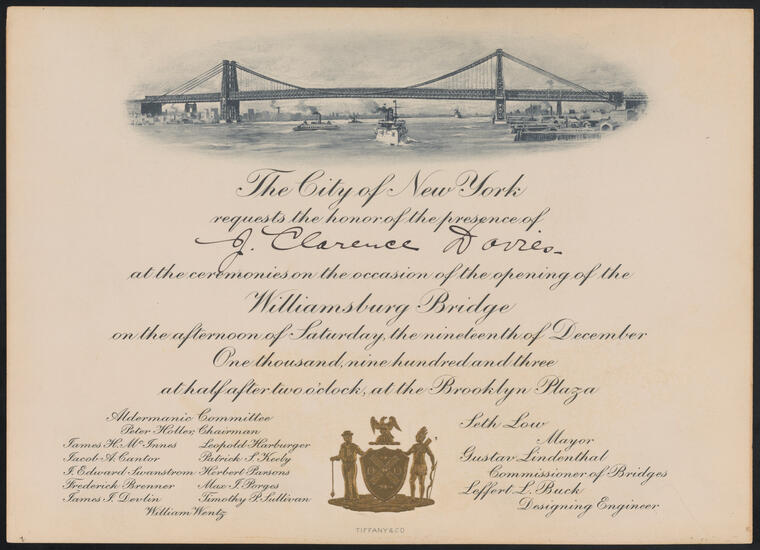 The City of New York
requests the honor of the presence of
J. Clarence Davies
at the ceremonies on the occasion of the opening of the
Williamsburg Bridge
on the afternoon of Saturday, the nineteenth of December
One thousand, nine hundred and three
at half after two o'clock, at the Brooklyn Plaza
Aldermanic Committee
Peter Holler, Chairman
James H. McInnes Leopold Harburger
Jacob A. Cantor Patrick S. Keely
J. Edward Swanstrom Herbert Parsons
Frederick Brenner Max J. Porges
James J. Devlin Timothy P. Sullivan
William Wentz
Seth Low
Mayor
Gustav Lindenthal
Commissioner of Bridges
Leffert L. Buck
Designing Engineer
TIFFANY & CO.